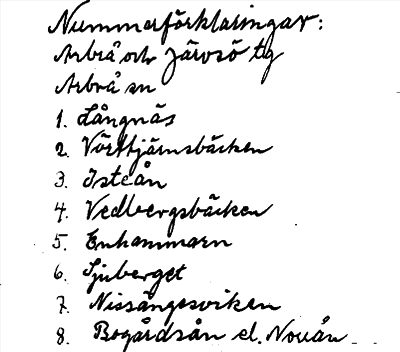 Nummerförklaringar:
Arbrå och Järvsö tg
Arbrå sn
1. Långnäs
2. Vörttjärnsbäcken
3. Isteån
4. Vedbergsbäcken
5. Enhammarn
6. Sjuberget
7. Nissångesviken
8. Bogårdsån el. Nouån